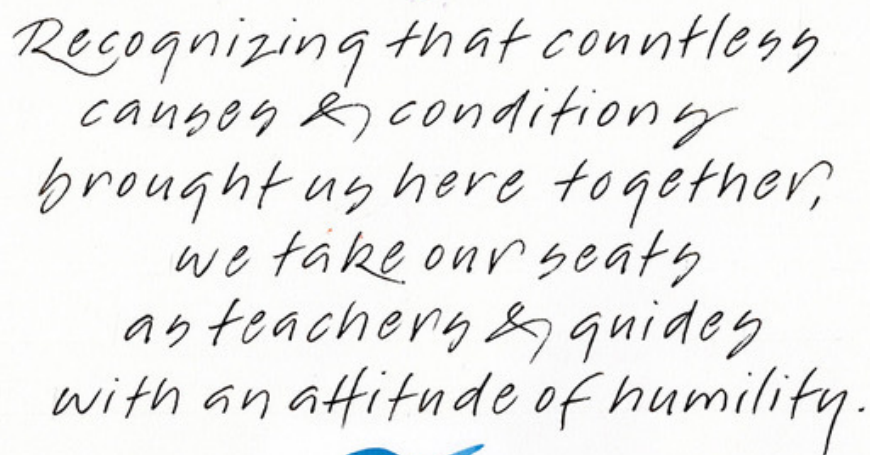 Recognizing that countless
causes & conditions
brought us here together,
we take our seats
as teachers & guides
with an attitude of humility.